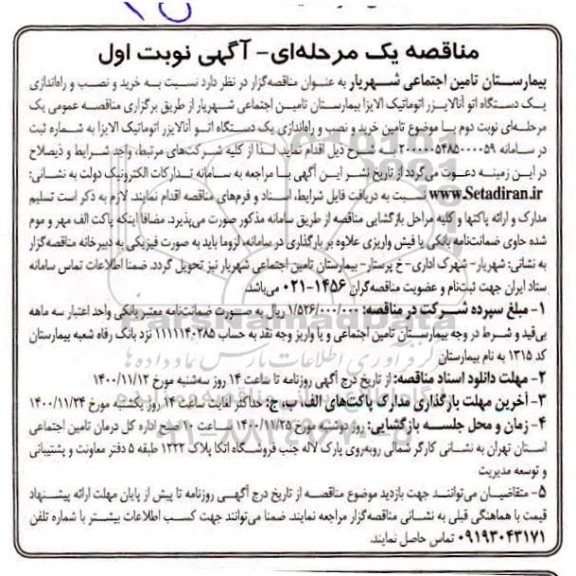 مناقصه یک مرحله‌ای- آگهی نوبت اول
بیمارستان تامین اجتماعی شهریار به عنوان مناقصه‌گزار در نظر دارد نسبت به خرید و نصب و راه‌اندازی
یک دستگاه اتو آنالایزر اتوماتیک الایزا بیمارستان تامین اجتماعی شهریار از طریق برگزاری مناقصه عمومی یک
مرحله‌ای نوبت دوم با موضوع تامین خرید و نصب و راه‌اندازی یک دستگاه اتو آنالایزر اتوماتیک الایزا به شماره ثبت
در سامانه به شرح ذیل اقدام نماید. لذا از کلیه شرکت‌های مرتبط، واجد شرایط و ذیصلاح
در این زمینه دعوت می‌گردد از تاریخ نشر این آگهی با مراجعه به سامانه تدارکات الکترونیک دولت به نشانی:
www.Setadiran.ir نسبت به دریافت فایل شرایط، اسناد و فرم‌های مناقصه اقدام نمایند. لازم به ذکر است تسلیم
مدارک و ارائه پاکتها و کلیه مراحل بازگشایی مناقصه از طریق سامانه مذکور صورت می‌پذیرد. مضافا اینکه پاکت الف مهر و موم
شده حاوی ضمانت‌نامه بانکی یا فیش واریزی علاوه بر بارگذاری در سامانه، لزوما باید به صورت فیزیکی به دبیرخانه مناقصه‌گزار
به نشانی: شهریار- شهرک اداری- خ پرستار- بیمارستان تامین اجتماعی شهریار نیز تحویل گردد. ضمنا اطلاعات تماس سامانه
ستاد ایران جهت ثبت‌نام و عضویت مناقصه‌گران ۱۴۵۶-۰۲۱ می‌باشد.
۱- مبلغ سپرده شرکت در مناقصه: ۱/۵۲۶/۰۰۰/۰۰۰ ریال به صورت ضمانت‌نامه معتبر بانکی واجد اعتبار سه ماهه
بی‌قید و شرط در وجه بیمارستان تامین اجتماعی و یا واریز وجه نقد به حساب ۱۱۱۱۱۴۰۲۸۵ نزد بانک رفاه شعبه بیمارستان
کد ۱۳۱۵ به نام بیمارستان
۲- مهلت دانلود اسناد مناقصه: از تاریخ درج آگهی روزنامه تا ساعت ۱۴ روز سه‌شنبه مورخ ۱۴۰۰/۱۱/۱۲
۳- آخرین مهلت بارگذاری مدارک پاکت‌های الف، ب، ج: حداکثر لغایت ساعت ۱۴ روز یکشنبه مورخ ۱۴۰۰/۱۱/۲۴
۴- زمان و محل جلسه بازگشایی: روز دوشنبه مورخ ۱۴۰۰/۱۱/۲۵ ساعت ۱۰ صبح اداره کل درمان تامین اجتماعی
استان تهران به نشانی کارگر شمالی روبه‌روی پارک لاله جنب فروشگاه اتکا پلاک ۱۲۲۲ طبقه ۵ دفتر معاونت و پشتیبانی
و توسعه مدیریت
۵- متقاضیان می‌توانند جهت بازدید موضوع مناقصه از تاریخ درج آگهی روزنامه تا پیش از پایان مهلت ارائه پیشنهاد
قیمت با هماهنگی قبلی به نشانی مناقصه‌گزار مراجعه نمایند. ضمنا می‌توانند جهت کسب اطلاعات بیشتر با شماره تلفن
۰۹۱۹۳۰۴۳۱۷۱ تماس حاصل نمایند.